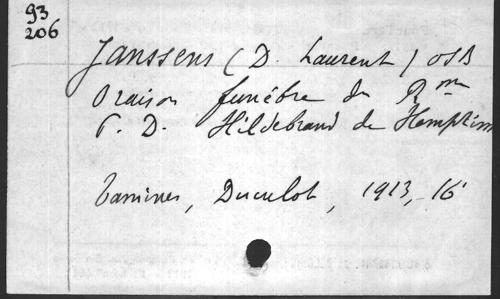 93
206
Janssens (D. Laurent) OSB
Oraison funèbre du Rme
P. D. Hildebrand de Hemptinne
Tamines, Duculot, 1913, 16°